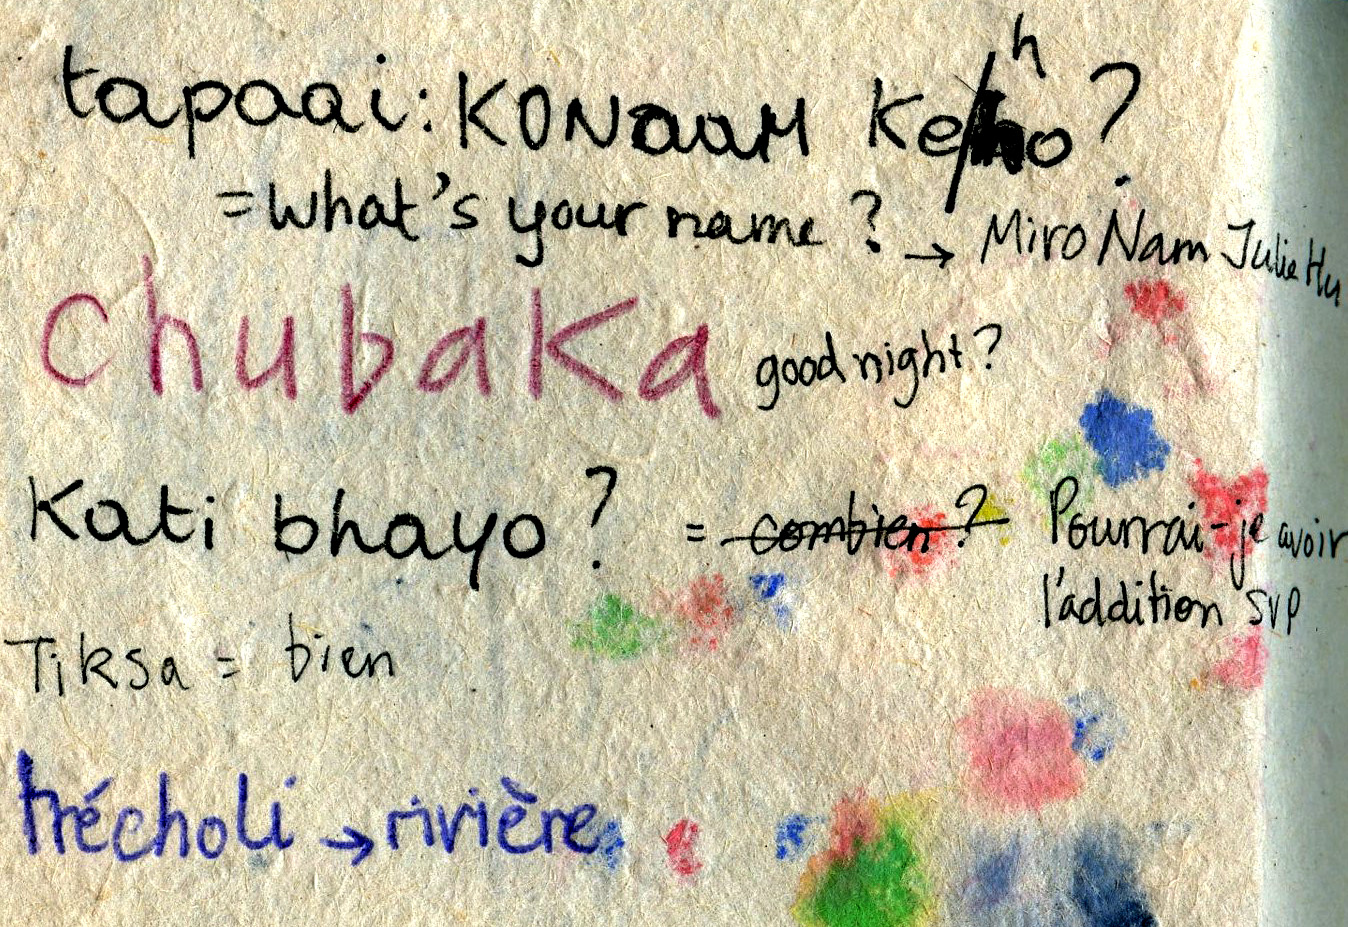 tapaai: KONaaM Ke/ho?
h
= What's your name ? → Miro Nam Julie Hu
ChubaKa good night?
Kati bhayo ? = combien ? Pourrai-je avoir
l'addition svp
Tiksa = bien
trécholi → rivière